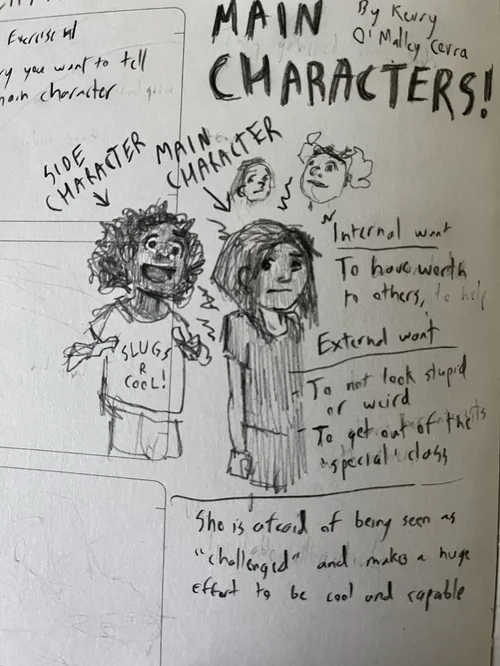 MAIN
CHARACTERS!
By Kerry
O'Malley Cerra
Exercise #1
you want to tell
main character
SIDE
CHARACTER
MAIN
CHARACTER
SLUGS
R
COOL!
Internal want
To have worth
to others, to help
External want
To not look stupid
or weird
To get out of the
"special" class
She is afraid of being seen as
"challenged" and makes a huge
effort to be cool and capable